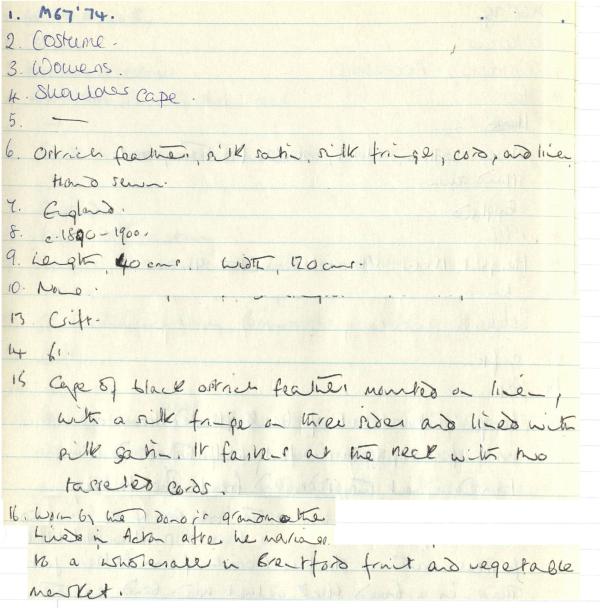 1. M67'74.
2. Costume.
3. Womens.
4. Shoulder cape.
5. —
6. Ostrich feather, silk satin, silk fringe, cord, and linen,
Hand sewn.
7. England.
8. c.1890-1900.
9. Length, 40 cms. Width, 120 cms.
10. None.
13 Gift.
14 £1.
15 Cape of black ostrich feather mounted on linen,
with a silk fringe on three sides and lined with
silk satin. It fastens at the neck with two
tasseled cords.
16. Worn by the donor's grandmother
Lived in Acton after her marriage
to a wholesaler in Brentford fruit and vegetable
market.